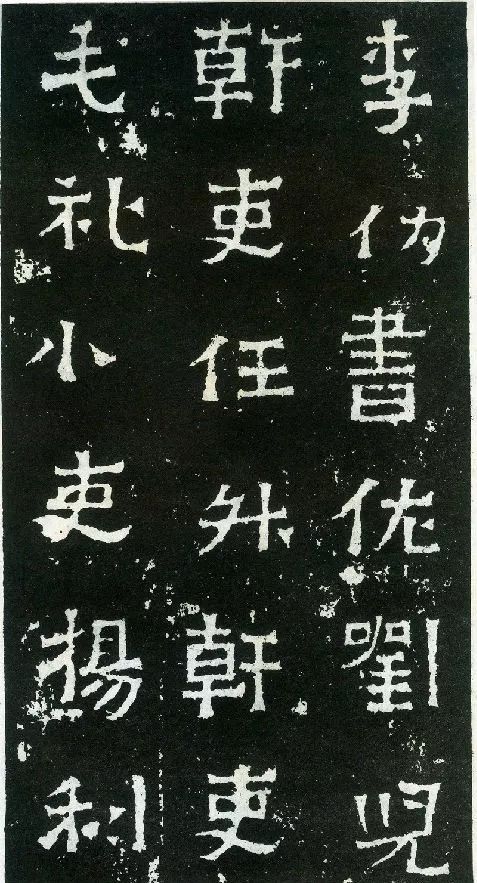 李書佐劉
幹吏任幹吏
毛礼小吏楊利